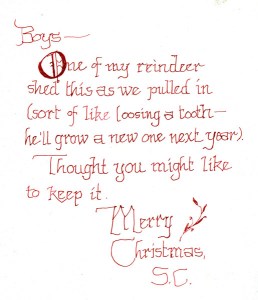 Boys—
One of my reindeer
shed this as we pulled in
(sort of like loosing a tooth—
he'll grow a new one next year).
Thought you might like
to keep it.
Merry
Christmas,
S.C.